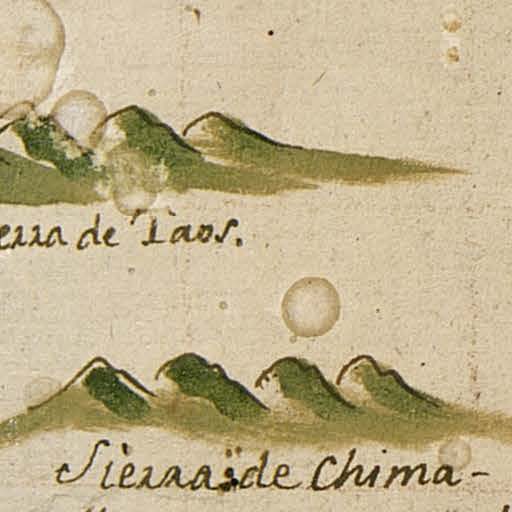 erra de Taos.
Sierra de Chima-